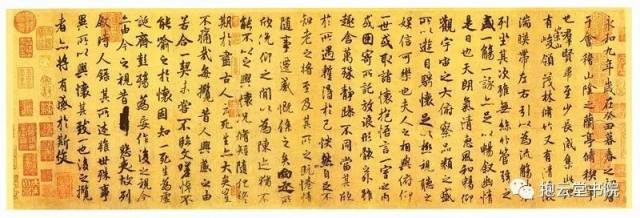 永和九年歲在癸丑暮春之初會
于會稽山陰之蘭亭脩稧事
也群賢畢至少長咸集此地
有崇山峻領茂林脩竹又有清流激
湍暎帶左右引以為流觴曲水
列坐其次雖無絲竹管弦之
盛一觴一詠亦足以暢敘幽情
是日也天朗氣清惠風和暢仰
觀宇宙之大俯察品類之盛
所以遊目騁懷足以極視聽之
娛信可樂也夫人之相與俯仰
一世或取諸懷抱悟言一室之內
或因寄所託放浪形骸之外雖
趣舍萬殊靜躁不同當其欣
於所遇蹔得於己怏然自足不
知老之將至及其所之既惓情
隨事遷感慨係之矣向之所
欣俛仰之間以為陳跡猶不
能不以之興懷況脩短隨化終
期於盡古人云死生亦大矣豈
不痛哉每攬昔人興感之由
若合一契未嘗不臨文嗟悼不
能喻之於懷固知一死生為虛
誕齊彭殤為妄作後之視今
亦由今之視昔悲夫故列
敘時人錄其所述雖世殊事
異所以興懷其致一也後之攬
者亦將有感於斯文
抱云堂书院